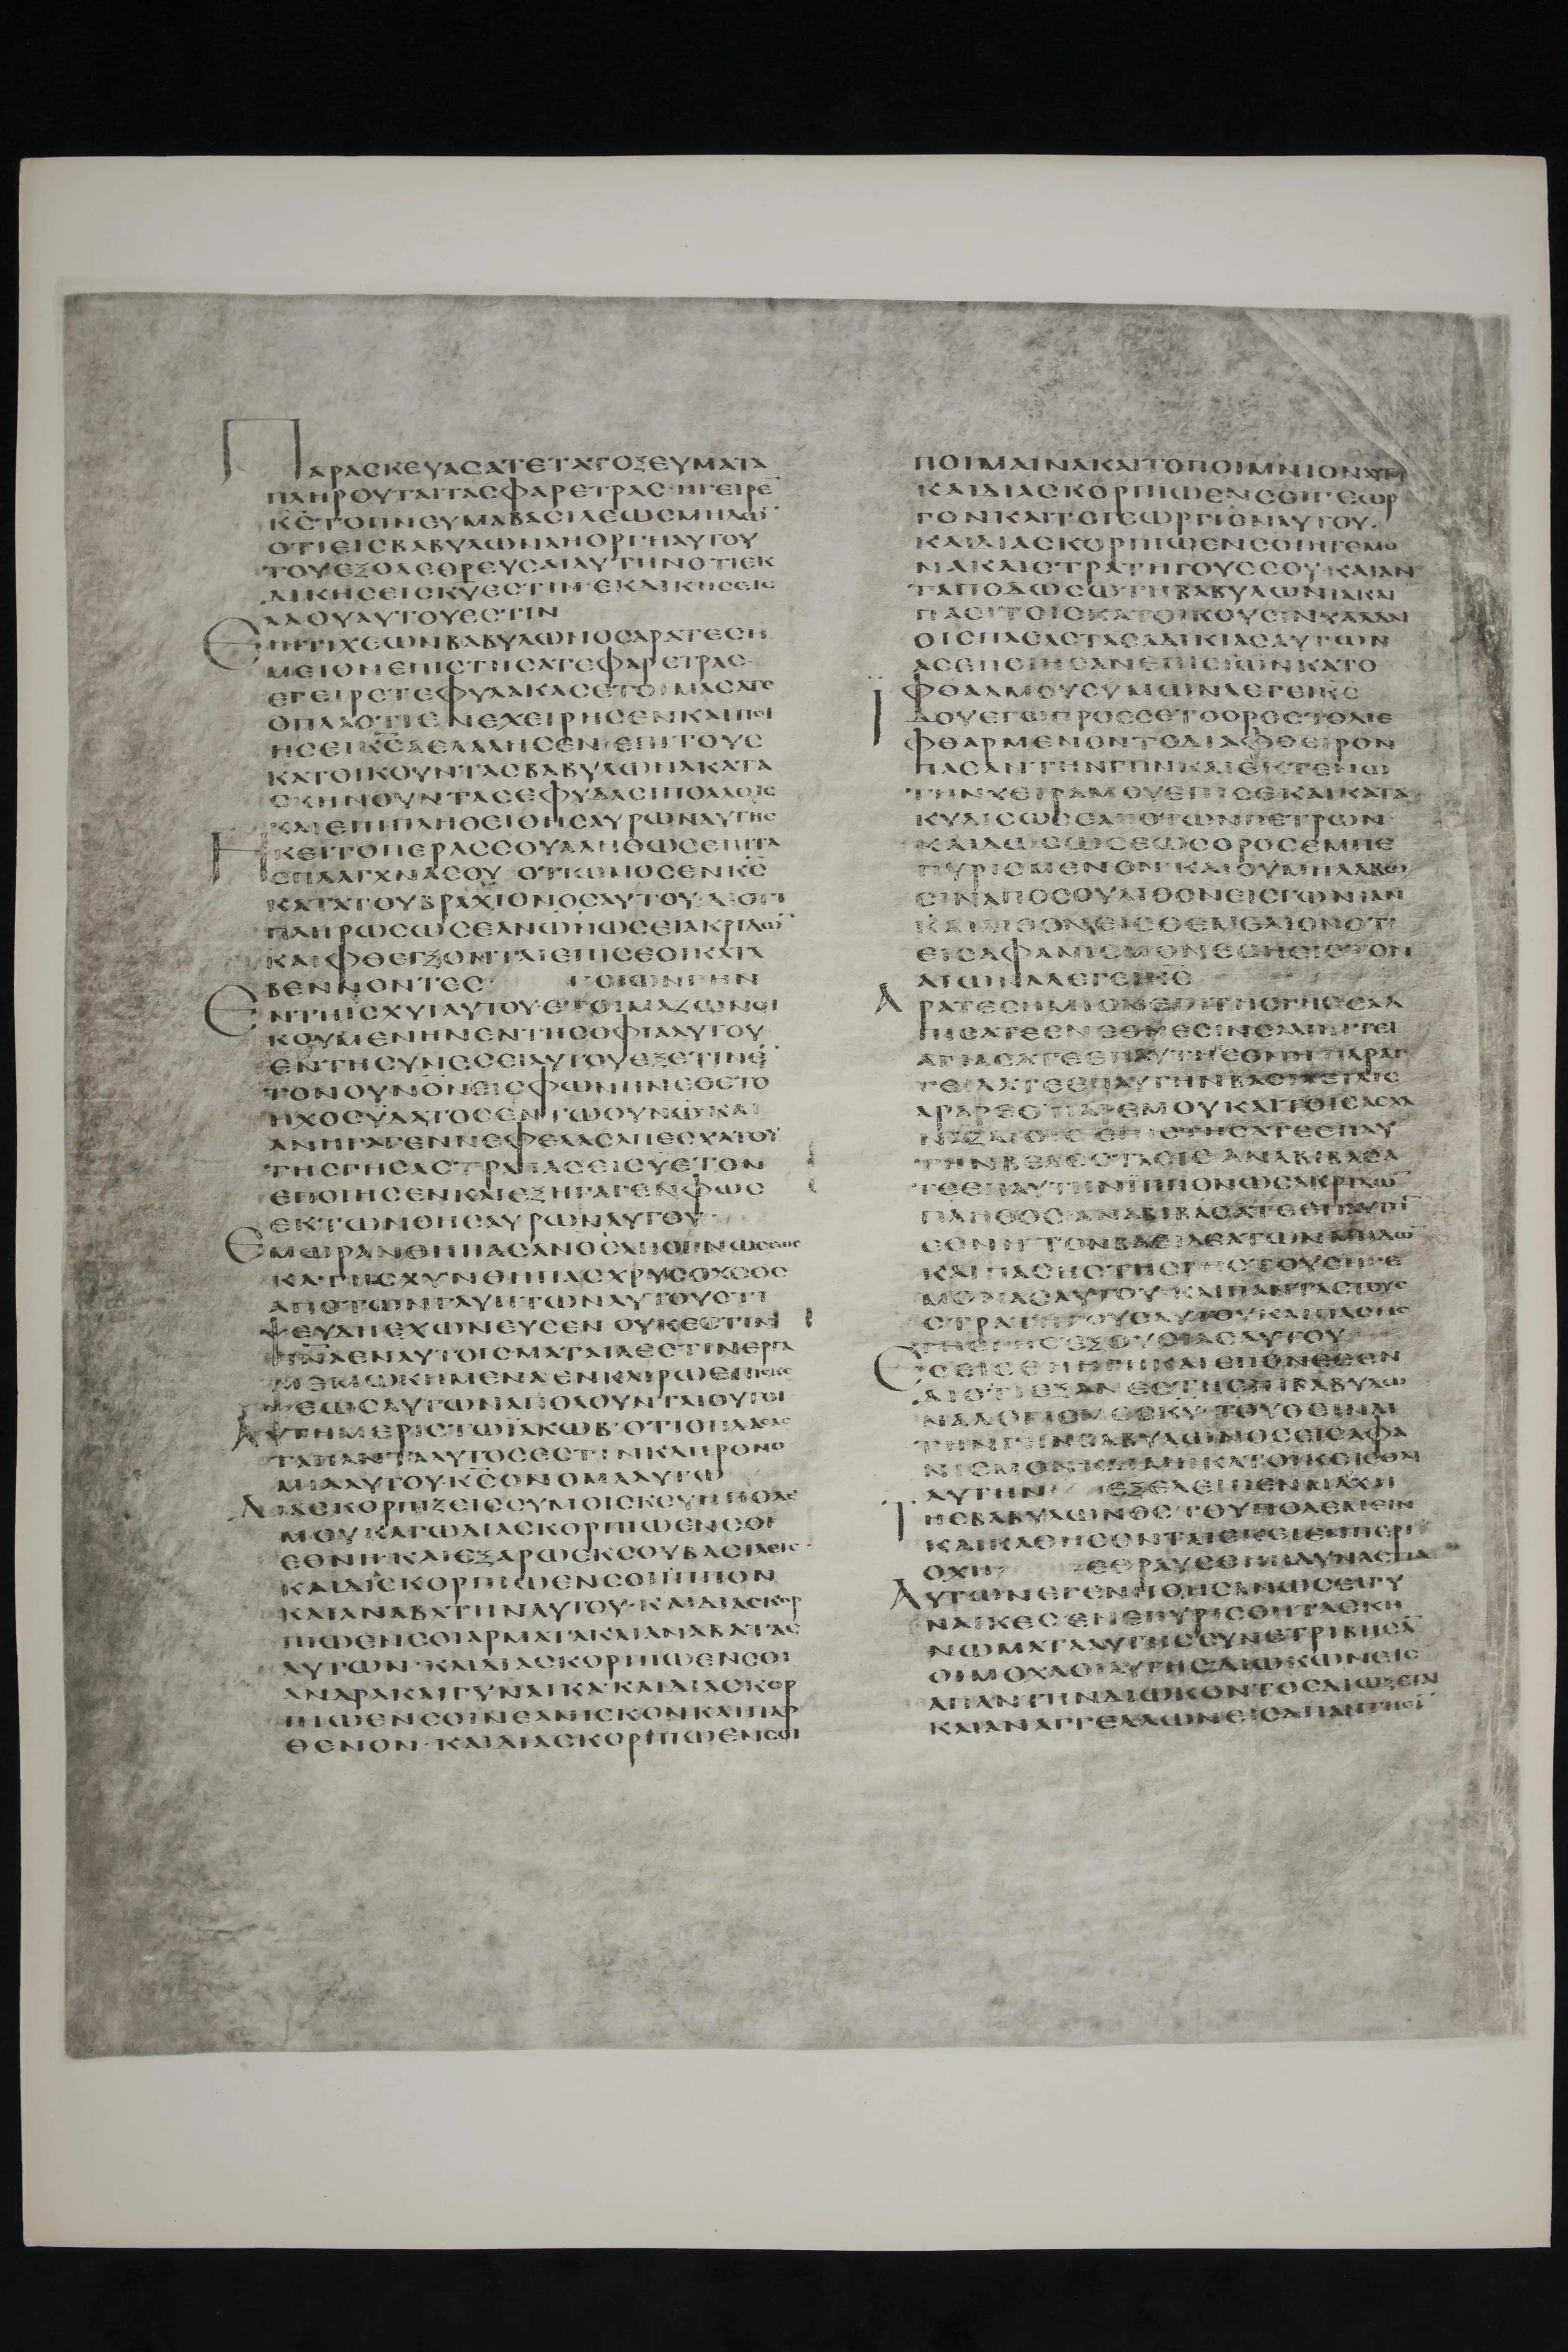 ΠΑΡΑΣΚΕΥΑΣΑΤΕΤΑΤΟΞΕΥΜΑΤΑ
ΠΛΗΡΟΥΤΑΙΤΑΣΦΑΡΕΤΡΑΣ·ΗΓΕΙΡΕ
ΚΣΤΟΠΝΕΥΜΑΒΑΣΙΛΕΩΣΜΗΔΩ
ΟΤΙΕΙΣΒΑΒΥΛΩΝΑΗΟΡΓΗΑΥΤΟΥ
ΤΟΥΕΞΟΛΕΘΡΕΥΣΑΙΑΥΤΗΝΟΤΙΕΚ
ΔΙΚΗΣΕΙΣΚΥΕΣΤΙΝ·ΕΚΔΙΚΗΣΕΙΣ
ΛΑΟΥΑΥΤΟΥΕΣΤΙΝ
ΕΠΙΤΙΧΕΩΝΒΑΒΥΛΩΝΟΣΑΡΑΤΕΣΗ
ΜΕΙΟΝΕΠΙΣΤΗΣΑΤΕΦΑΡΕΤΡΑΣ·
ΕΓΕΙΡΕΤΕΦΥΛΑΚΑΣΕΤΟΙΜΑΣΑΤΕ
ΟΠΛΑΟΤΙΕΝΕΧΕΙΡΗΣΕΝΚΑΙΠΟΙ
ΗΣΕΙΚΣΑΕΛΑΛΗΣΕΝ·ΕΠΙΤΟΥΣ
ΚΑΤΟΙΚΟΥΝΤΑΣΒΑΒΥΛΩΝΑΚΑΤΑ
ΣΚΗΝΟΥΝΤΑΣΕΦΥΔΑΣΙΠΟΛΛΟΙΣ
ΚΑΙΕΠΙΠΛΗΘΕΙΘΗΣΑΥΡΩΝΑΥΤΗΣ
ΗΚΕΙΤΟΠΕΡΑΣΣΟΥΑΛΗΘΩΣΕΙΣΤΑ
ΣΠΛΑΓΧΝΑΣΟΥ ΟΤΙΩΜΟΣΕΝΚΣ
ΚΑΤΑΤΟΥΒΡΑΧΙΟΝΟΣΑΥΤΟΥ·ΔΙΟΤΙ
ΠΛΗΡΩΣΩΣΕΑΝΩΝΩΣΕΙΑΚΡΙΔΩ
ΚΑΙΦΘΕΓΞΟΝΤΑΙΕΠΙΣΕΟΙΚΑΤΑ
ΒΕΝΝΟΝΤΕΣ· ΠΟΙΩΝΓΗΝ
ΕΝΤΗΙΣΧΥΙΑΥΤΟΥ·ΕΤΟΙΜΑΖΩΝΟΙ
ΚΟΥΜΕΝΗΝΕΝΤΗΣΟΦΙΑΑΥΤΟΥ
ΕΝΤΗΣΥΝΕΣΕΙΑΥΤΟΥΕΞΕΤΙΝΕ
ΤΟΝΟΥΝΟΝΕΙΣΦΩΝΗΝΕΘΕΤΟ
ΗΧΟΣΥΔΑΤΟΣΕΝΤΩΟΥΝΩΚΑΙ
ΑΝΗΓΑΓΕΝΝΕΦΕΛΑΣΑΠΕΣΧΑΤΟΥ
ΤΗΣΓΗΣΑΣΤΡΑΠΑΣΕΙΣΥΕΤΟΝ
ΕΠΟΙΗΣΕΝΚΑΙΕΞΗΓΑΓΕΝΦΩΣ
ΕΚΤΩΝΘΗΣΑΥΡΩΝΑΥΤΟΥ·
ΕΜΩΡΑΝΘΗΠΑΣΑΝΟΣΑΠΟΓΝΩΣΕΩΣ
ΚΑΤΗΣΧΥΝΘΗΠΑΣΧΡΥΣΟΧΟΟΣ
ΑΠΟΤΩΝΓΛΥΠΤΩΝΑΥΤΟΥΟΤΙ
ΨΕΥΔΗΕΧΩΝΕΥΣΕΝ ΟΥΚΕΣΤΙΝ
ΠΝΑΕΝΑΥΤΟΙΣΜΑΤΑΙΑΕΣΤΙΝΕΡΓΑ
ΜΕΜΩΚΗΜΕΝΑΕΝΚΑΙΡΩΕΠΙΣΚΕ
ΨΕΩΣΑΥΤΩΝΑΠΟΛΟΥΝΤΑΙΟΥΤΟΙ
ΑΥΤΗΜΕΡΙΣΤΩΙΑΚΩΒ·ΟΤΙΟΠΛΑΣΑΣ
ΤΑΠΑΝΤΑΑΥΤΟΣΕΣΤΙΝΚΛΗΡΟΝΟ
ΜΙΑΑΥΤΟΥ·ΚΣΟΝΟΜΑΑΥΤΩ
ΔΙΑΣΚΟΡΠΙΖΕΙΣΣΥΜΟΙΣΚΕΥΗΠΟΛΕ
ΜΟΥ·ΚΑΓΩΔΙΑΣΚΟΡΠΙΩΕΝΣΟΙ
ΕΘΝΗ·ΚΑΙΕΞΑΡΩΕΚΣΟΥΒΑΣΙΛΕΙΣ·
ΚΑΙΔΙΣΚΟΡΠΙΩΕΝΣΟΙΙΠΠΟΝ
ΚΑΙΑΝΑΒΑΤΗΝΑΥΤΟΥ·ΚΑΙΔΙΑΣΚΟΡ
ΠΙΩΕΝΣΟΙΑΡΜΑΤΑΚΑΙΑΝΑΒΑΤΑΣ
ΑΥΤΩΝ·ΚΑΙΔΙΑΣΚΟΡΠΙΩΕΝΣΟΙ
ΑΝΔΡΑΚΑΙΓΥΝΑΙΚΑ·ΚΑΙΔΙΑΣΚΟΡ
ΠΙΩΕΝΣΟΙΝΕΑΝΙΣΚΟΝΚΑΙΠΑΡ
ΘΕΝΟΝ·ΚΑΙΔΙΑΣΚΟΡΠΙΩΕΝΣΟΙ
ΠΟΙΜΑΙΝΑΚΑΙΤΟΠΟΙΜΝΙΟΝΑΥΤΟΥ
ΚΑΙΔΙΑΣΚΟΡΠΙΩΕΝΣΟΙΓΕΩΡ
ΓΟΝΚΑΙΤΟΓΕΩΡΓΙΟΝΑΥΤΟΥ·
ΚΑΙΔΙΑΣΚΟΡΠΙΩΕΝΣΟΙΗΓΕΜΟ
ΝΑΚΑΙΣΤΡΑΤΗΓΟΥΣΣΟΥ·ΚΑΙΑΝ
ΤΑΠΟΔΩΣΩΤΗΒΑΒΥΛΩΝΙΑΚΑΙ
ΠΑΣΙΤΟΙΣΚΑΤΟΙΚΟΥΣΙΝΧΑΛΔΑΙ
ΟΙΣΠΑΣΑΣΤΑΣΑΔΙΚΙΑΣΑΥΤΩΝ
ΑΣΕΠΟΙΗΣΑΝΕΠΙΣΙΩΝΚΑΤΟ
ΦΘΑΛΜΟΥΣΥΜΩΝΛΕΓΕΙΚΣ
ΙΔΟΥΕΓΩΠΡΟΣΣΕΤΟΟΡΟΣΤΟΔΙΕ
ΦΘΑΡΜΕΝΟΝΤΟΔΙΑΦΘΕΙΡΟΝ
ΠΑΣΑΝΤΗΝΓΗΝΚΑΙΕΚΤΕΝΩ
ΤΗΝΧΕΙΡΑΜΟΥΕΠΙΣΕΚΑΙΚΑΤΑ
ΚΥΛΙΣΩΣΕΑΠΟΤΩΝΠΕΤΡΩΝ
ΚΑΙΔΩΣΩΣΕΩΣΟΡΟΣΕΜΠΕ
ΠΥΡΙΣΜΕΝΟΝ·ΚΑΙΟΥΜΗΛΑΒΩ
ΣΙΝΑΠΟΣΟΥΛΙΘΟΝΕΙΣΓΩΝΙΑΝ
ΚΑΙΛΙΘΟΝΕΙΣΘΕΜΕΛΙΟΝΟΤΙ
ΕΙΣΑΦΑΝΙΣΜΟΝΕΣΗΕΙΣΤΟΝ
ΑΙΩΝΑΛΕΓΕΙΚΣ
ΑΡΑΤΕΣΗΜΙΟΝΕΠΙΤΗΣΓΗΣΣΑΛ
ΠΙΣΑΤΕΕΝΕΘΝΕΣΙΝΣΑΛΠΙΓΓΙ
ΑΓΙΑΣΑΤΕΕΠΑΥΤΗΕΘΝΗΠΑΡΑΓ
ΓΕΙΛΑΤΕΕΠΑΥΤΗΝΒΑΣΙΛΕΙΑΙΣ
ΤΗΝΒΕΛΟΣΤΑΣΙΣ ΑΝΑΒΙΒΑΣΑ
ΤΕΕΠΑΥΤΗΝΙΠΠΟΝΩΣΑΚΡΙΔΩ
ΠΛΗΘΟΣ·ΑΝΑΒΙΒΑΣΑΤΕΕΠΑΥΤΗ
ΕΘΝΗ·ΤΟΝΒΑΣΙΛΕΑΤΩΝΜΗΔΩ
ΚΑΙΠΑΣΗΣΤΗΣΓΗΣΤΟΥΣΗΓΕ
ΜΟΝΑΣΑΥΤΟΥ·ΚΑΙΠΑΝΤΑΣΤΟΥΣ
ΣΤΡΑΤΗΓΟΥΣΑΥΤΟΥΚΑΙΠΑΣΗΣ
ΤΗΣΓΗΣΕΞΟΥΣΙΑΣΑΥΤΟΥ
ΕΣΕΙΣΕΗΓΗΚΑΙΕΠΟΝΕΣΕΝ
ΔΙΟΤΙΕΞΑΝΕΣΤΗΕΠΙΒΑΒΥΛΩ
ΝΑΛΟΓΙΣΜΟΣΚΥ·ΤΟΥΘΕΙΝΑΙ
ΤΗΝΓΗΝΒΑΒΥΛΩΝΟΣΕΙΣΑΦΑ
ΝΙΣΜΟΝΚΑΙΜΗΚΑΤΟΙΚΕΙΣΘΑΙ
ΑΥΤΗΝ ΕΞΕΛΕΙΠΕΝΜΑΧΗ
ΤΗΣΒΑΒΥΛΩΝΟΣ·ΤΟΥΠΟΛΕΜΕΙΝ
ΚΑΙΚΑΘΗΣΟΝΤΑΙΕΚΕΙΕΝΠΕΡΙ
ΟΧΗ ΕΘΡΑΥΣΘΗΗΔΥΝΑΣΤΙΑ
ΑΥΤΩΝΕΓΕΝΗΘΗΣΑΝΩΣΕΙΓΥ
ΝΑΙΚΕΣ·ΕΝΕΠΥΡΙΣΘΗΤΑΣΚΗ
ΝΩΜΑΤΑΑΥΤΗΣΣΥΝΕΤΡΙΒΗΣΑ
ΟΙΜΟΧΛΟΙΑΥΤΗΣΔΙΩΚΩΝΕΙΣ
ΑΠΑΝΤΗΝΔΙΩΚΟΝΤΟΣΔΙΩΞΕΙΣ
ΚΑΙΑΝΑΓΓΕΛΛΩΝΕΙΣΑΠΑΝΤΗΣΙ